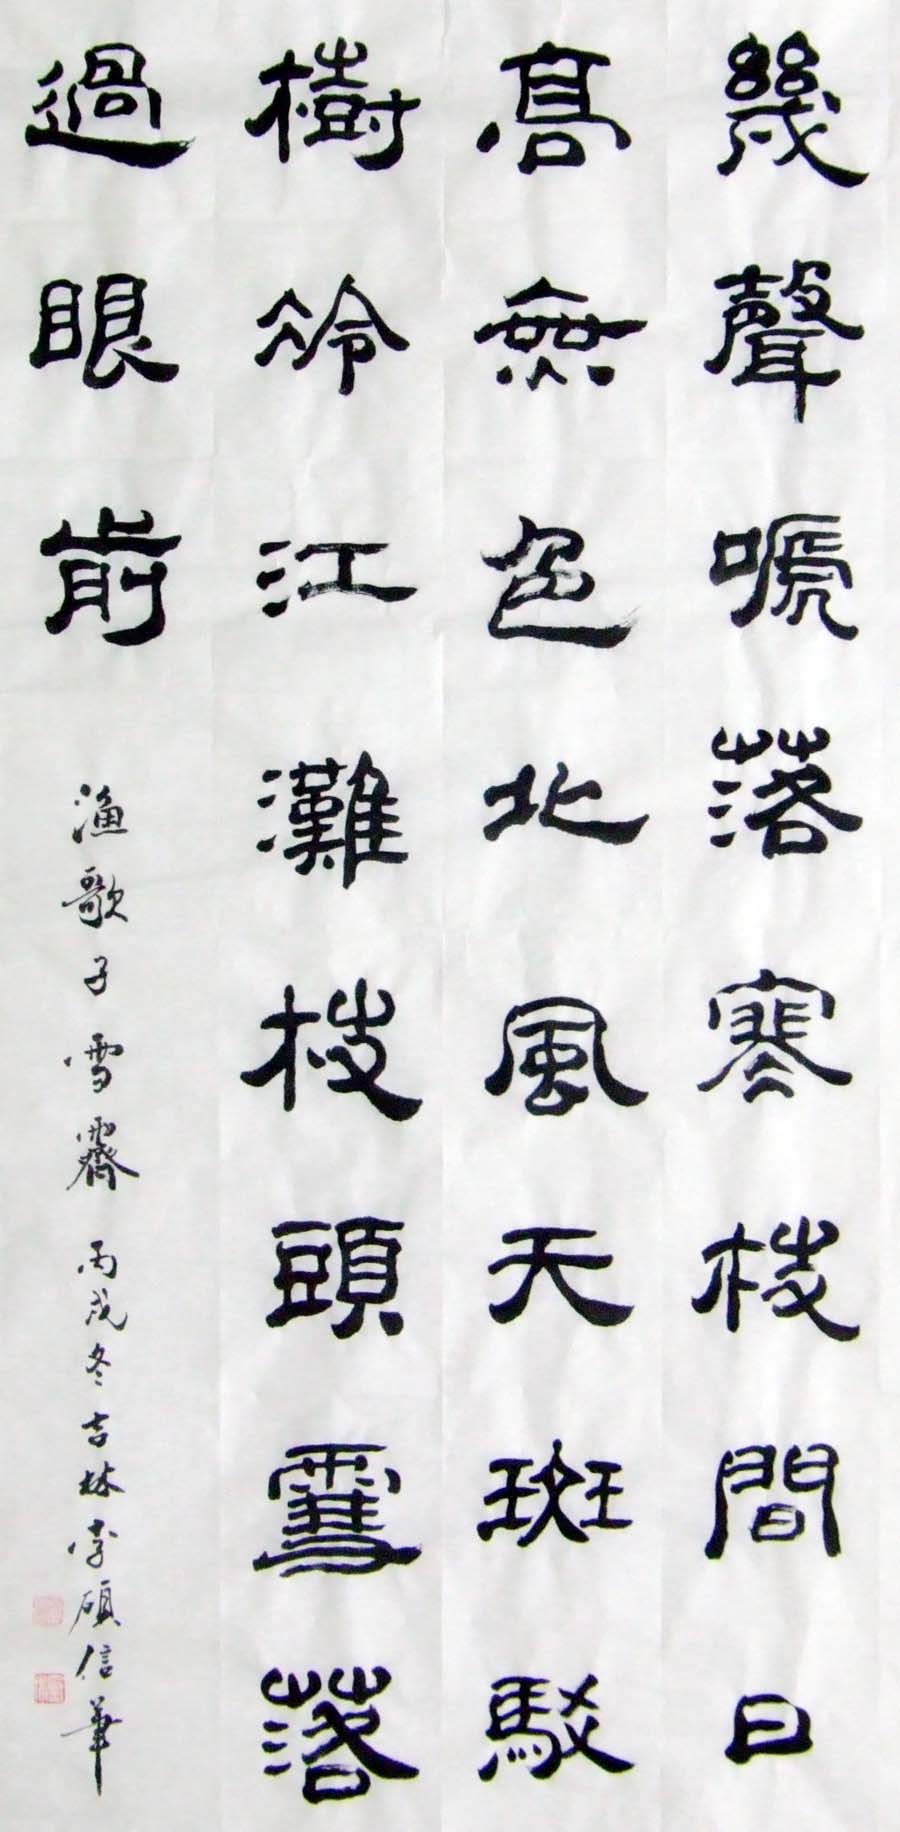 幾聲嗁落寒枝間日
髙無色北風天斑駁
樹冷江灘枝頭雪落
過眼前
漁歌子雪霽 丙戌冬吉林李碩信筆